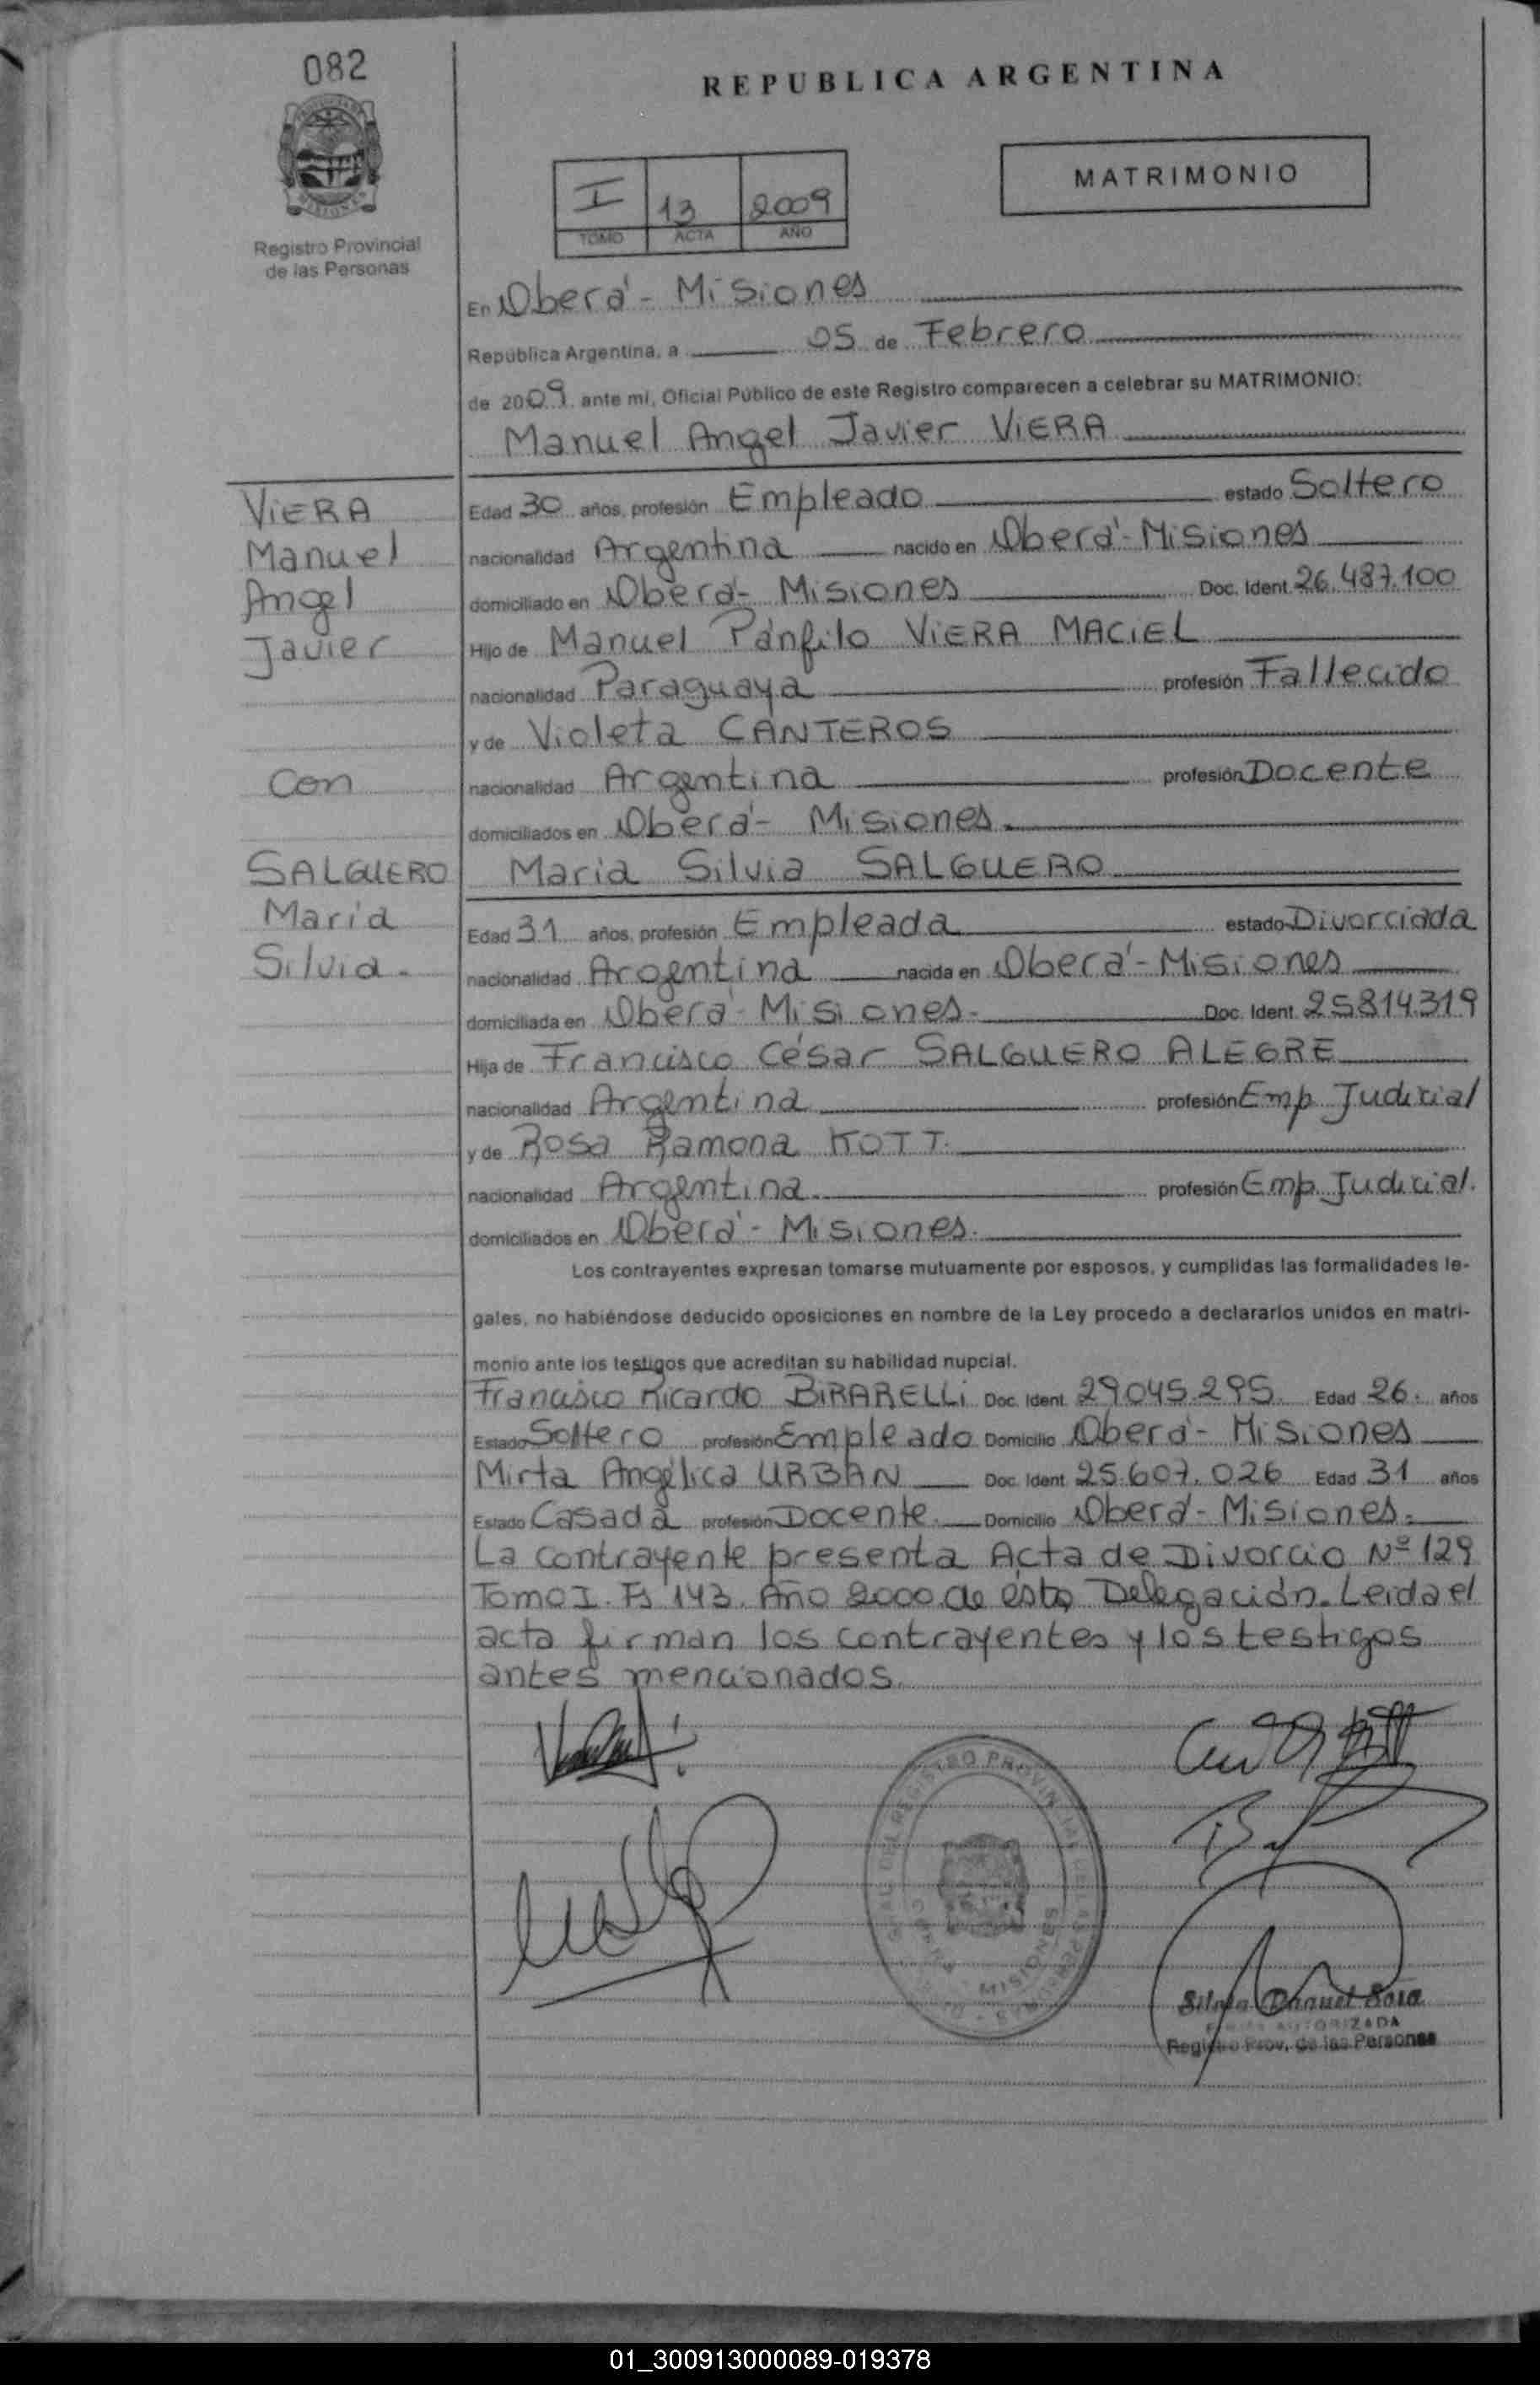 082
REPUBLICA ARGENTINA
MATRIMONIO
I 13 2009
TOMO ACTA AÑO
Registro Provincial
de las Personas
En Oberá - Misiones
República Argentina, a 05 de Febrero
de 2009 ante mí, Oficial Público de este Registro comparecen a celebrar su MATRIMONIO:
Manuel Angel Javier ViERA
ViERA
Manuel
Angel
Javier
Con
SALGUERO
Maria
Silvia.
Edad 30 años, profesión Empleado estado Soltero
nacionalidad Argentina nacido en Oberá - Misiones
domiciliado en Oberá - Misiones Doc. Ident. 26.487.100
Hijo de Manuel Pánfilo ViERA MACiEL
nacionalidad Paraguaya profesión Fallecido
y de Violeta CANTEROS
nacionalidad Argentina profesión Docente
domiciliados en Oberá - Misiones.
Maria Silvia SALGUERO
Edad 31 años, profesión Empleada estado Divorciada
nacionalidad Argentina nacida en Oberá - Misiones
domiciliada en Oberá - Misiones. Doc. Ident. 25814319
Hija de Francisco César SALGUERO ALEGRE
nacionalidad Argentina profesión Emp Judicial
y de Rosa Ramona KOTT.
nacionalidad Argentina. profesión Emp. Judicial.
domiciliados en Oberá - Misiones.
Los contrayentes expresan tomarse mutuamente por esposos, y cumplidas las formalidades le-
gales, no habiéndose deducido oposiciones en nombre de la Ley procedo a declararlos unidos en matri-
monio ante los testigos que acreditan su habilidad nupcial.
Francisco Ricardo BiRARELLi Doc. Ident. 29045.295. Edad 26. años
Estado Soltero profesión Empleado Domicilio Oberá - Misiones
Mirta Angélica URBAN Doc. Ident. 25.607.026 Edad 31 años
Estado Casada profesión Docente. Domicilio Oberá - Misiones.
La contrayente presenta Acta de Divorcio Nº 129
Tomo I. Fs 143. Año 2000. de ésta Delegación. Leida el
acta firman los contrayentes y los testigos
antes mencionados.
REGISTRO PROVINCIAL DE LAS PERSONAS
MISIONES
AUTORIZADA
Registro Prov. de las Personas
01_300913000089-019378